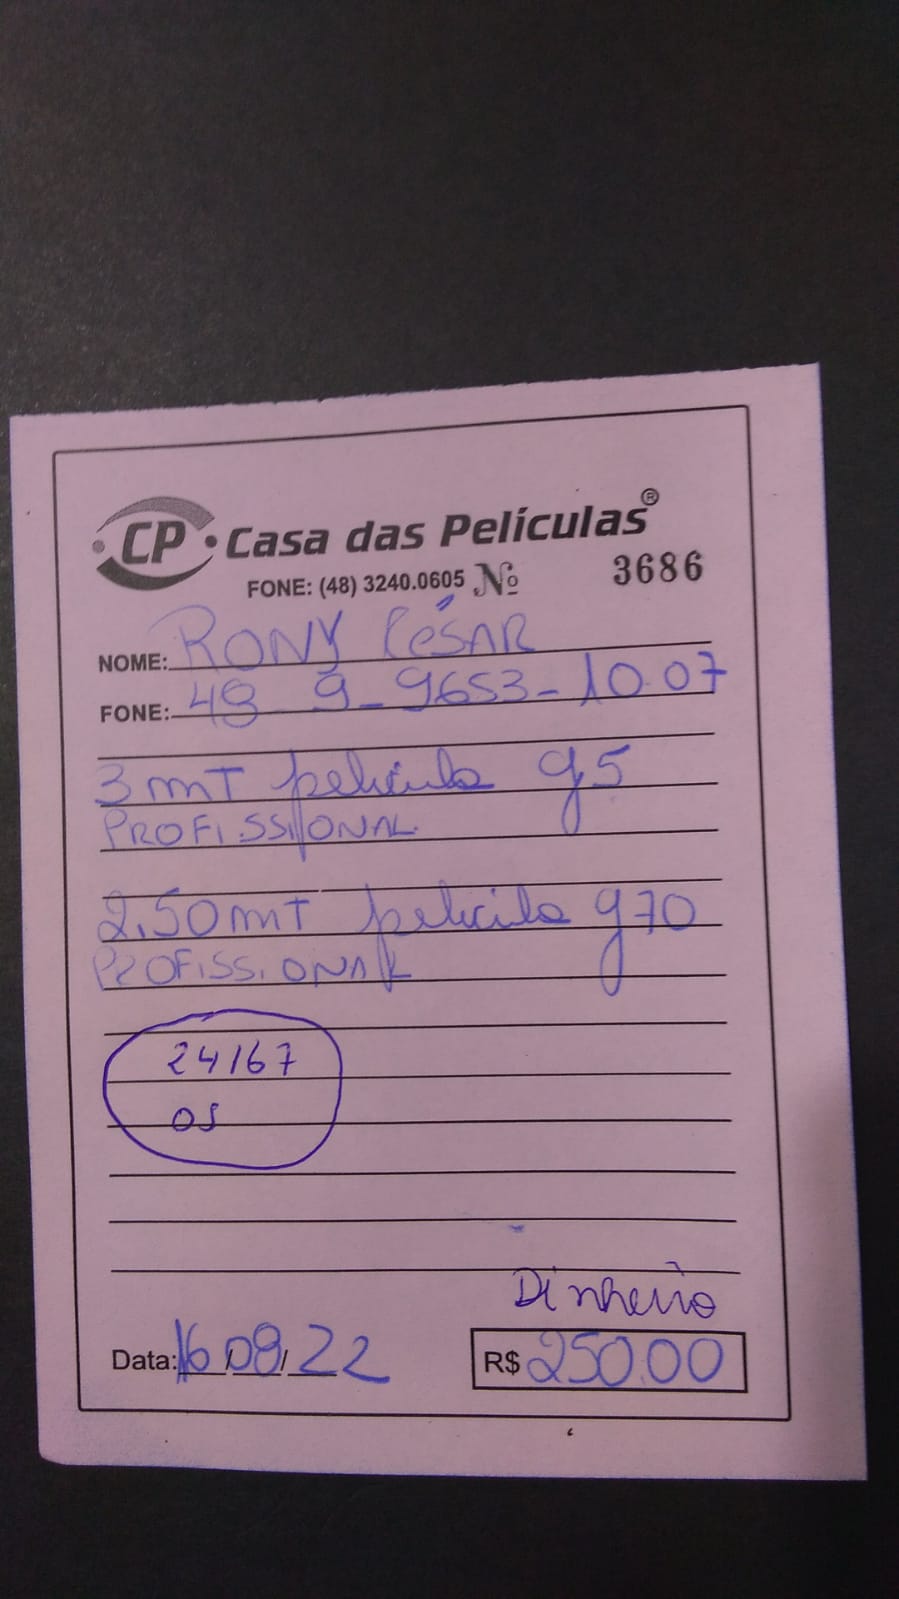 CP Casa das Películas®
FONE: (48) 3240.0605 Nº 3686
NOME: RONY CÉSAR
FONE: 48 9-9653-1007
3 mT película g5
PROFISSIONAL
2,50 mT película g70
PROFISSIONAL
24167
OS
Dinheiro
Data: 16/08/22 R$ 250.00